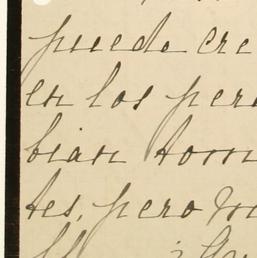 puedo cre
en los per
bian tom
tes, pero m